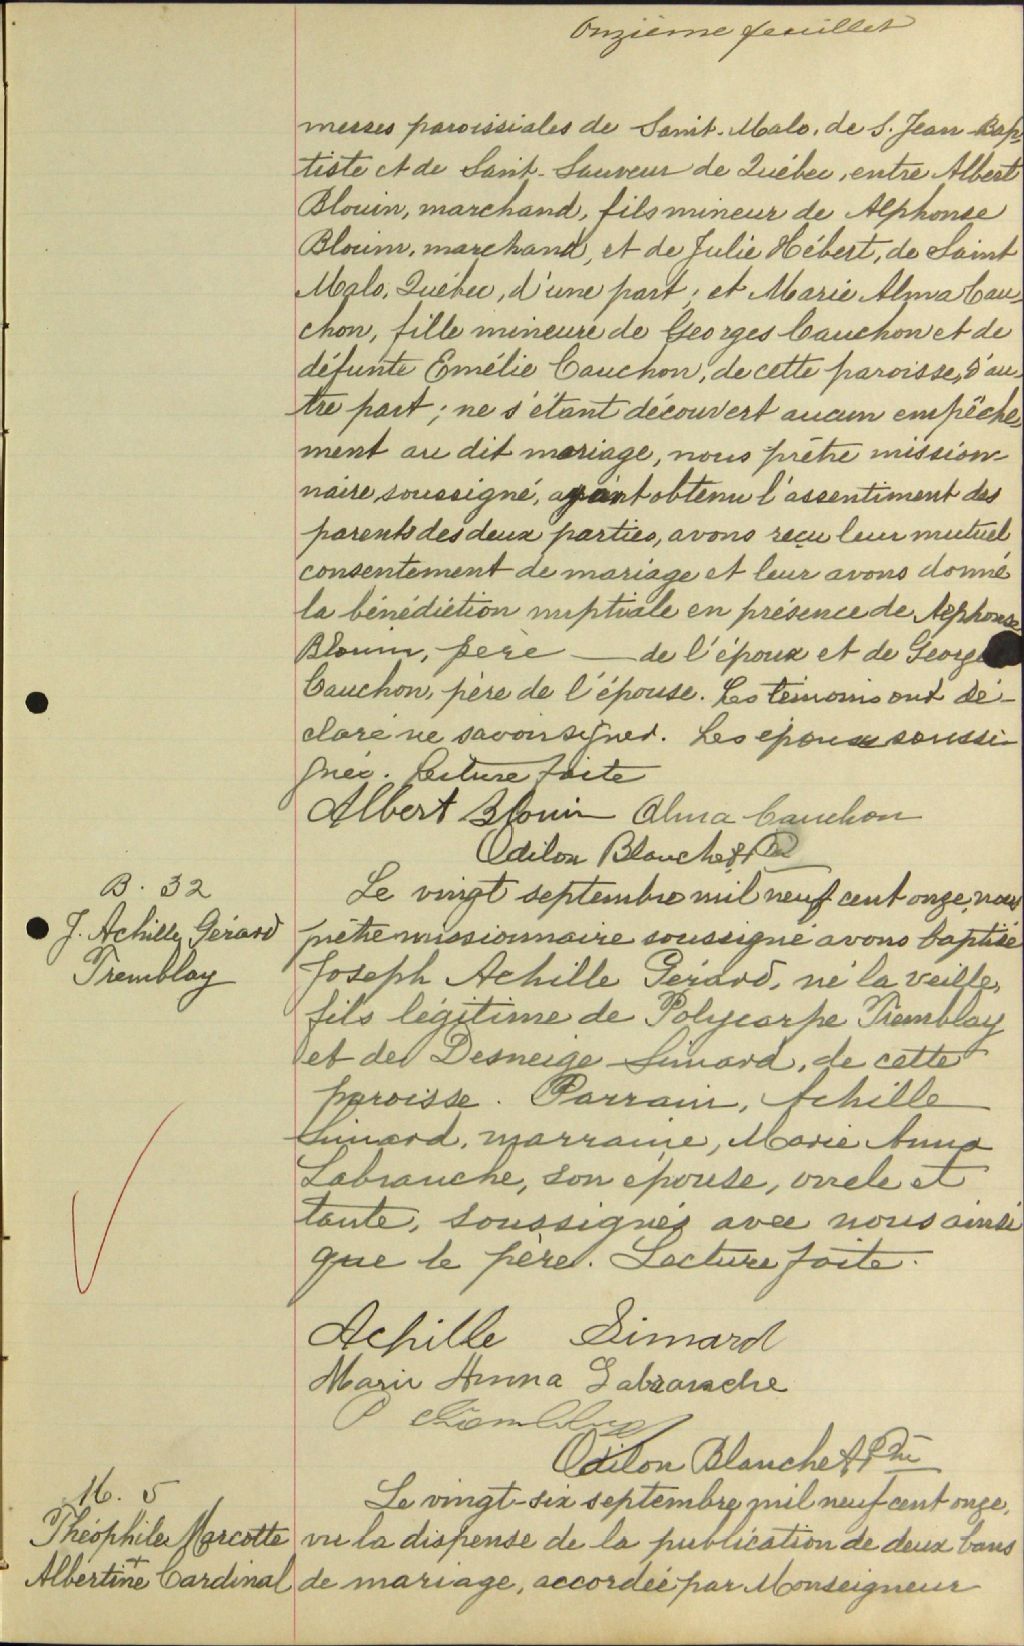 Onzième feuillet
messes paroissiales de Saint-Malo, de S. Jean-Bap-
tiste et de Saint-Sauveur de Québec, entre Albert
Blouin, marchand, fils mineur de Alphonse
Blouin, marchand, et de Julie Hébert, de Saint
Malo, Québec, d'une part; et Marie Alma Cau-
chon, fille mineure de Georges Cauchon et de
défunte Emélie Cauchon, de cette paroisse, d'au-
tre part; ne s'étant découvert aucun empêche-
ment au dit mariage, nous prêtre mission-
naire soussigné, ayant obtenu l'assentiment des
parents des deux parties, avons reçu leur mutuel
consentement de mariage et leur avons donné
la bénédiction nuptiale en présence de Alphonse
Blouin, père — de l'époux et de George
Cauchon, père de l'épouse. Les témoins ont dé-
claré ne savoir signer. Les époux soussi-
gnés. Lecture faite
Albert Blouin Alma Cauchon
Odilon Blanchet Ptre
B. 32
J. Achille Gérard
Tremblay
Le vingt septembre mil neuf cent onze, nous
prêtre missionnaire soussigné avons baptisé
Joseph Achille Gérard, né la veille,
fils légitime de Polycarpe Tremblay
et de Desneige Simard, de cette
paroisse. Parrain, Achille
Simard, marraine, Marie Anna
Labranche, son épouse, oncle et
tante, soussignés avec nous ainsi
que le père. Lecture faite.
Achille Simard
Marie Anna Labranche
P Tremblay
Odilon Blanchet Ptre
M. 5
Théophile Marcotte
+
Albertine Cardinal
Le vingt-six septembre mil neuf cent onze,
vu la dispense de la publication de deux bans
de mariage, accordée par Monseigneur